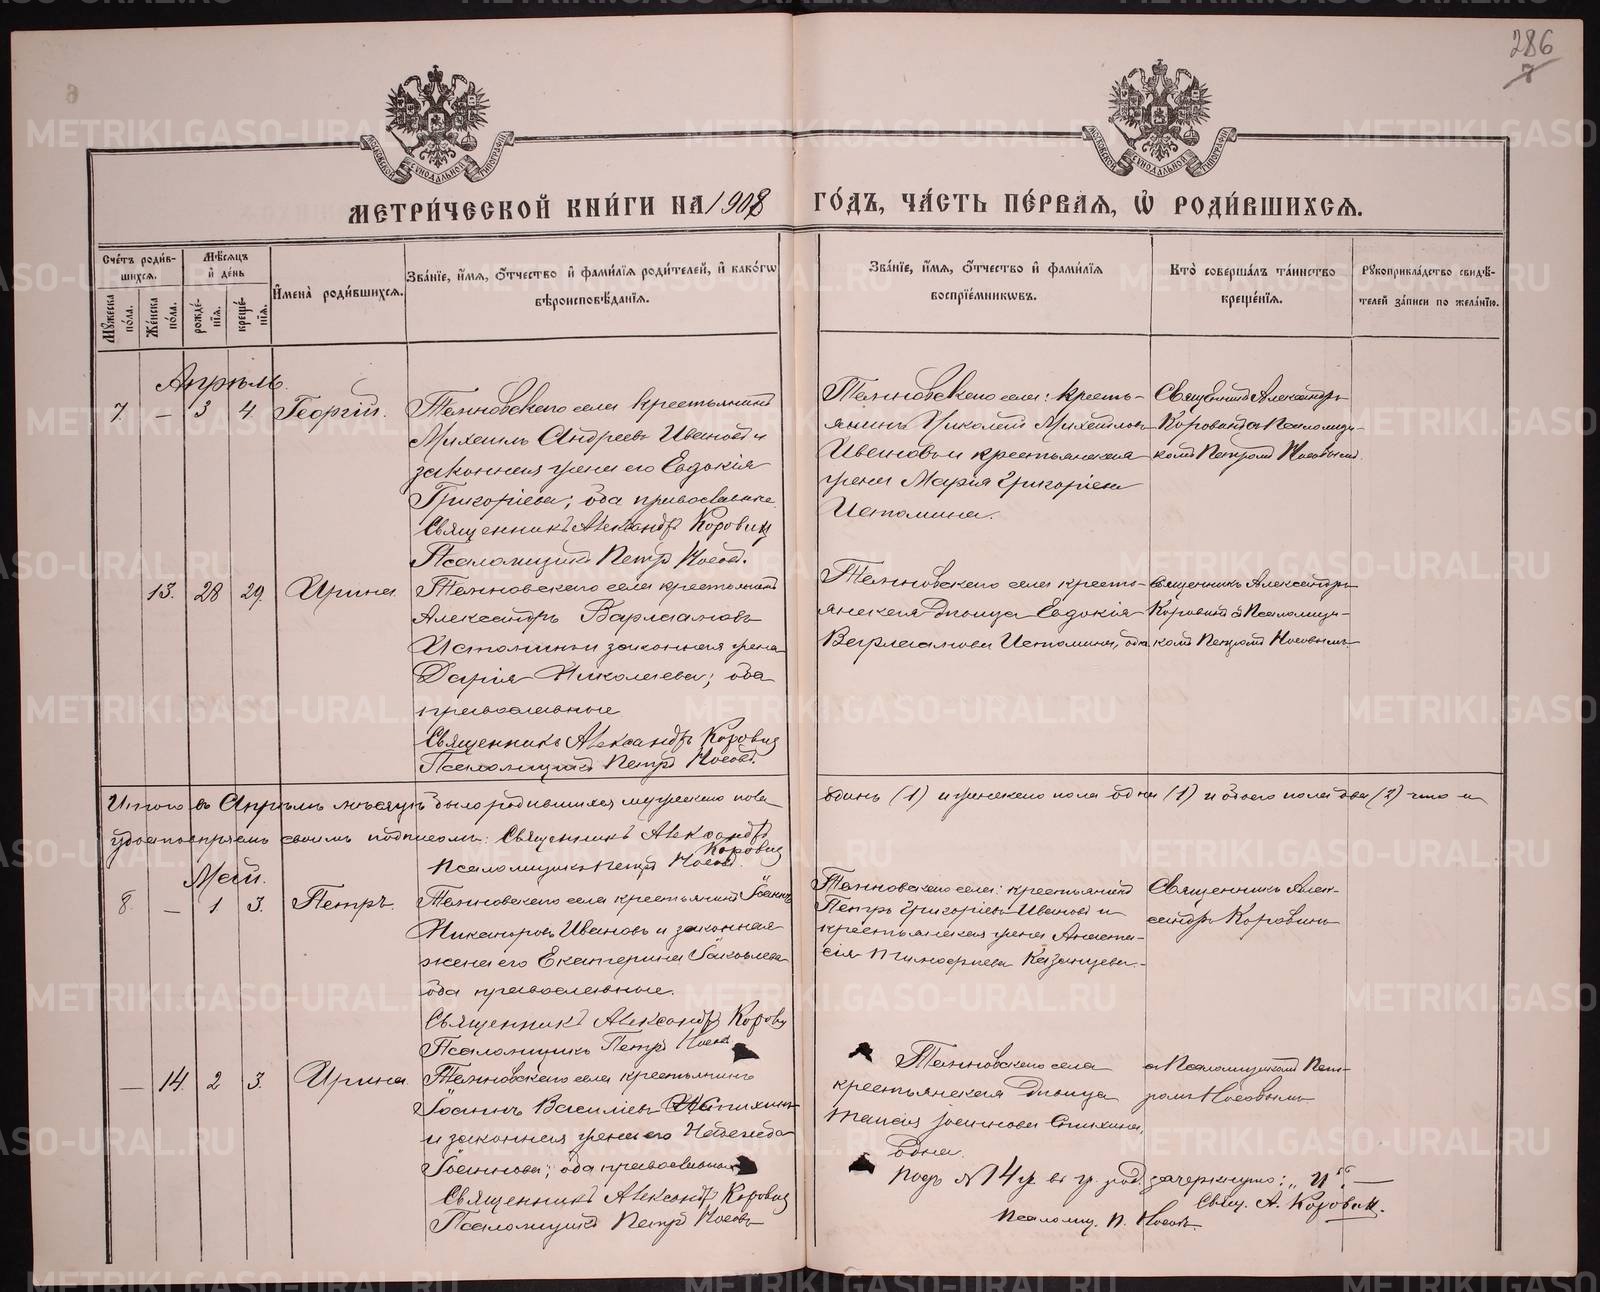 286
7
МЕТРИ́ЧЕСКОЙ КНИ́ГИ НА 1908 ГО́ДЪ, ЧА́СТЬ ПЕ́РВАѦ, Ѡ҆ РОДИ́ВШИХСѦ.
Сче́тъ роди́в-
шихсѧ.
Мѣ́сѧцъ
и҆ де́нь
Мꙋ́жеска
по́ла.
Же́нска
по́ла.
рожде́-
нїѧ.
креще́-
нїѧ.
И҆мена̀ роди́вшихсѧ.
Зва́нїе, и҆́мѧ, ѻ҆́тчество и҆ фами́лїѧ роди́телей, и҆ како́гѡ
вѣроисповѣ́данїѧ.
Зва́нїе, и҆́мѧ, ѻ҆́тчество и҆ фами́лїѧ
воспрїе́мникѡвъ.
Кто̀ соверша́лъ та́инство
креще́нїѧ.
Рꙋкоприкла́дство свидѣ́-
телей за́писи по жела́нїю.
Апрѣль.
7. — 3 4. Георгій.
села крестьянинъ
Михаилъ Андреевъ Ивановъ и
законная жена его Евдокія
Григоріева; оба православные
Священникъ Александръ Коровинъ
Псаломщикъ Петръ Носовъ.
села: кресть-
янинъ Николай Михайловъ
Ивановъ и крестьянская
жена Марія Григоріева
Истомина.
Священникъ Александръ
Коровинъ съ Псаломщи-
комъ Петромъ Носовымъ.
13. 28 29. Ирина.
села крестьянинъ
Александръ Варлаамовъ
Истоминъ и законная жена
Дарія Николаева; оба
православные
Священникъ Александръ Коровинъ
Псаломщикъ Петръ Носовъ.
села кресть-
янская дѣвица Евдокія
Варлаамова Истомина, одна
Священникъ Александръ
Коровинъ съ Псаломщи-
комъ Петромъ Носовымъ
Итого въ Апрѣлѣ мѣсяцѣ было родившихся мужескаго пола одинъ (1) и женскаго пола одна (1) и обоего пола два (2) что и
удостовѣряемъ своимъ подписомъ: Священникъ Александръ
Коровинъ
Псаломщикъ Петръ Носовъ.
Май.
8. — 1. 3. Петръ.
села крестьянинъ Іоаннъ
Никаноровъ Ивановъ и законная
жена его Екатерина Іаковлева
оба православные.
Священникъ Александръ Коровинъ
Псаломщикъ Петръ Носовъ
села: крестьянинъ
Петръ Григоріевъ Ивановъ и
крестьянская жена Анаста-
сія Тимофеева Казанцева.
Священникъ Алек-
сандръ Коровинъ
— 14. 2 3. Ирина.
села крестьянинъ
Іоаннъ Василіевъ Спихинъ
и законная жена его Надежда
Іоаннова; оба православные
Священникъ Александръ Коровинъ
Псаломщикъ Петръ Носовъ
села
крестьянская дѣвица
Таисія Іоаннова Спихина,
одна.
съ Псаломщикомъ Пет-
ромъ Носовымъ
Подъ № 14 ж. въ гр. род. зачеркнуто: „И“. —
Свящ. А. Коровинъ.
Псаломщ. П. Носовъ.
METRIKI.GASO-URAL.RU